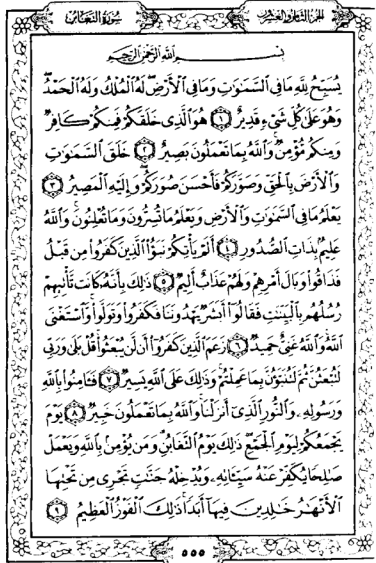 الجزء الثامن والعشرون
سُورَةُ التَّغَابُنِ
بِسْمِ اللَّهِ الرَّحْمَٰنِ الرَّحِيمِ
يُسَبِّحُ لِلَّهِ مَا فِي السَّمَٰوَٰتِ وَمَا فِي الْأَرْضِ ۖ لَهُ الْمُلْكُ وَلَهُ الْحَمْدُ ۖ
وَهُوَ عَلَىٰ كُلِّ شَيْءٍ قَدِيرٌ ﴿١﴾ هُوَ الَّذِي خَلَقَكُمْ فَمِنكُمْ كَافِرٌ
وَمِنكُم مُّؤْمِنٌ ۚ وَاللَّهُ بِمَا تَعْمَلُونَ بَصِيرٌ ﴿٢﴾ خَلَقَ السَّمَٰوَٰتِ
وَالْأَرْضَ بِالْحَقِّ وَصَوَّرَكُمْ فَأَحْسَنَ صُوَرَكُمْ ۖ وَإِلَيْهِ الْمَصِيرُ ﴿٣﴾
يَعْلَمُ مَا فِي السَّمَٰوَٰتِ وَالْأَرْضِ وَيَعْلَمُ مَا تُسِرُّونَ وَمَا تُعْلِنُونَ ۚ وَاللَّهُ
عَلِيمٌ بِذَاتِ الصُّدُورِ ﴿٤﴾ أَلَمْ يَأْتِكُمْ نَبَؤُا الَّذِينَ كَفَرُوا مِن قَبْلُ
فَذَاقُوا وَبَالَ أَمْرِهِمْ وَلَهُمْ عَذَابٌ أَلِيمٌ ﴿٥﴾ ذَٰلِكَ بِأَنَّهُ كَانَت تَّأْتِيهِمْ
رُسُلُهُم بِالْبَيِّنَٰتِ فَقَالُوا أَبَشَرٌ يَهْدُونَنَا فَكَفَرُوا وَتَوَلَّوا ۚ وَّاسْتَغْنَى
اللَّهُ ۚ وَاللَّهُ غَنِيٌّ حَمِيدٌ ﴿٦﴾ زَعَمَ الَّذِينَ كَفَرُوا أَن لَّن يُبْعَثُوا ۚ قُلْ بَلَىٰ وَرَبِّي
لَتُبْعَثُنَّ ثُمَّ لَتُنَبَّؤُنَّ بِمَا عَمِلْتُمْ ۚ وَذَٰلِكَ عَلَى اللَّهِ يَسِيرٌ ﴿٧﴾ فَـَٔامِنُوا بِاللَّهِ
وَرَسُولِهِ وَالنُّورِ الَّذِي أَنزَلْنَا ۚ وَاللَّهُ بِمَا تَعْمَلُونَ خَبِيرٌ ﴿٨﴾ يَوْمَ
يَجْمَعُكُمْ لِيَوْمِ الْجَمْعِ ۖ ذَٰلِكَ يَوْمُ التَّغَابُنِ ۗ وَمَن يُؤْمِن بِاللَّهِ وَيَعْمَلْ
صَٰلِحًا يُكَفِّرْ عَنْهُ سَيِّـَٔاتِهِ وَيُدْخِلْهُ جَنَّٰتٍ تَجْرِي مِن تَحْتِهَا
الْأَنْهَٰرُ خَٰلِدِينَ فِيهَا أَبَدًا ۚ ذَٰلِكَ الْفَوْزُ الْعَظِيمُ ﴿٩﴾
٥٥٥